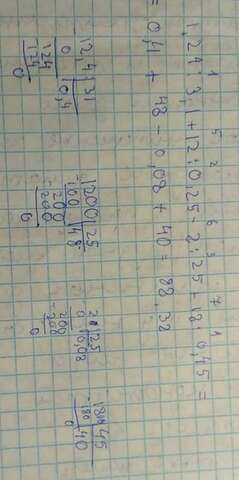 1 5 2 6 3 7 4
1,24 : 3,1 + 12 : 0,25 - 2 : 25 + 18 : 0,45 =
= 0,4 + 48 - 0,08 + 40 = 88,32
-12,4|31 1200|25 2|25 1800|45
0 |0,4 -100|48 0|0,08 -180|40
124 200 200 0
-124 -200 -200
0 0 0